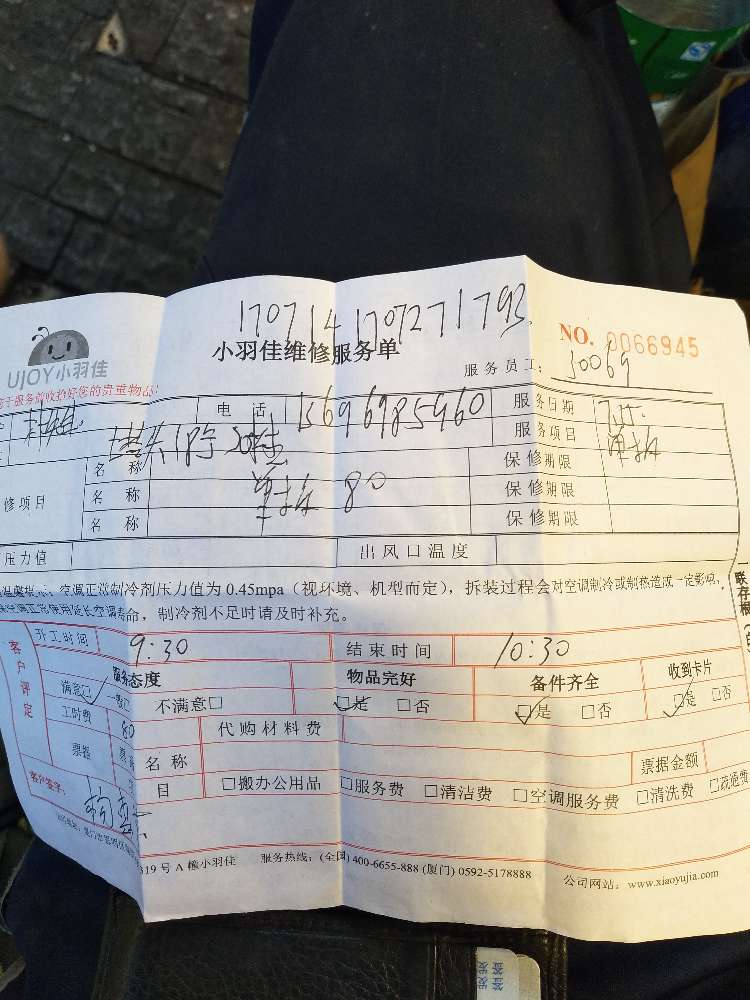 170714 1707271793
小羽佳维修服务单
NO. 0066945
UJOY小羽佳
服务员工: 50069
服务前收拾好您的贵重物品!
电 话 15696985960 服务日期
服务项目
名 称 保修期限
修项目 名 称 80 保修期限
名 称 保修期限
压力值 出风口温度
空调正常制冷剂压力值为 0.45mpa（视环境、机型而定），拆装过程会对空调制冷或制热造成一定影响，
命，制冷剂不足时请及时补充。
开工时间 9:30 结束时间 10:30
客户评定
态度 物品完好 备件齐全 收到卡片
满意□ 一般□ 不满意□ □是 □否 □是 □否 □是 □否
工时费 80 代购材料费
票据 名 称 票据金额
目 □搬办公用品 □服务费 □清洁费 □空调服务费 □清洗费 □疏通费
客户签字:
319 号 A 幢小羽佳 服务热线：(全国) 400-6655-888 (厦门) 0592-5178888 公司网站：www.xiaoyujia.com